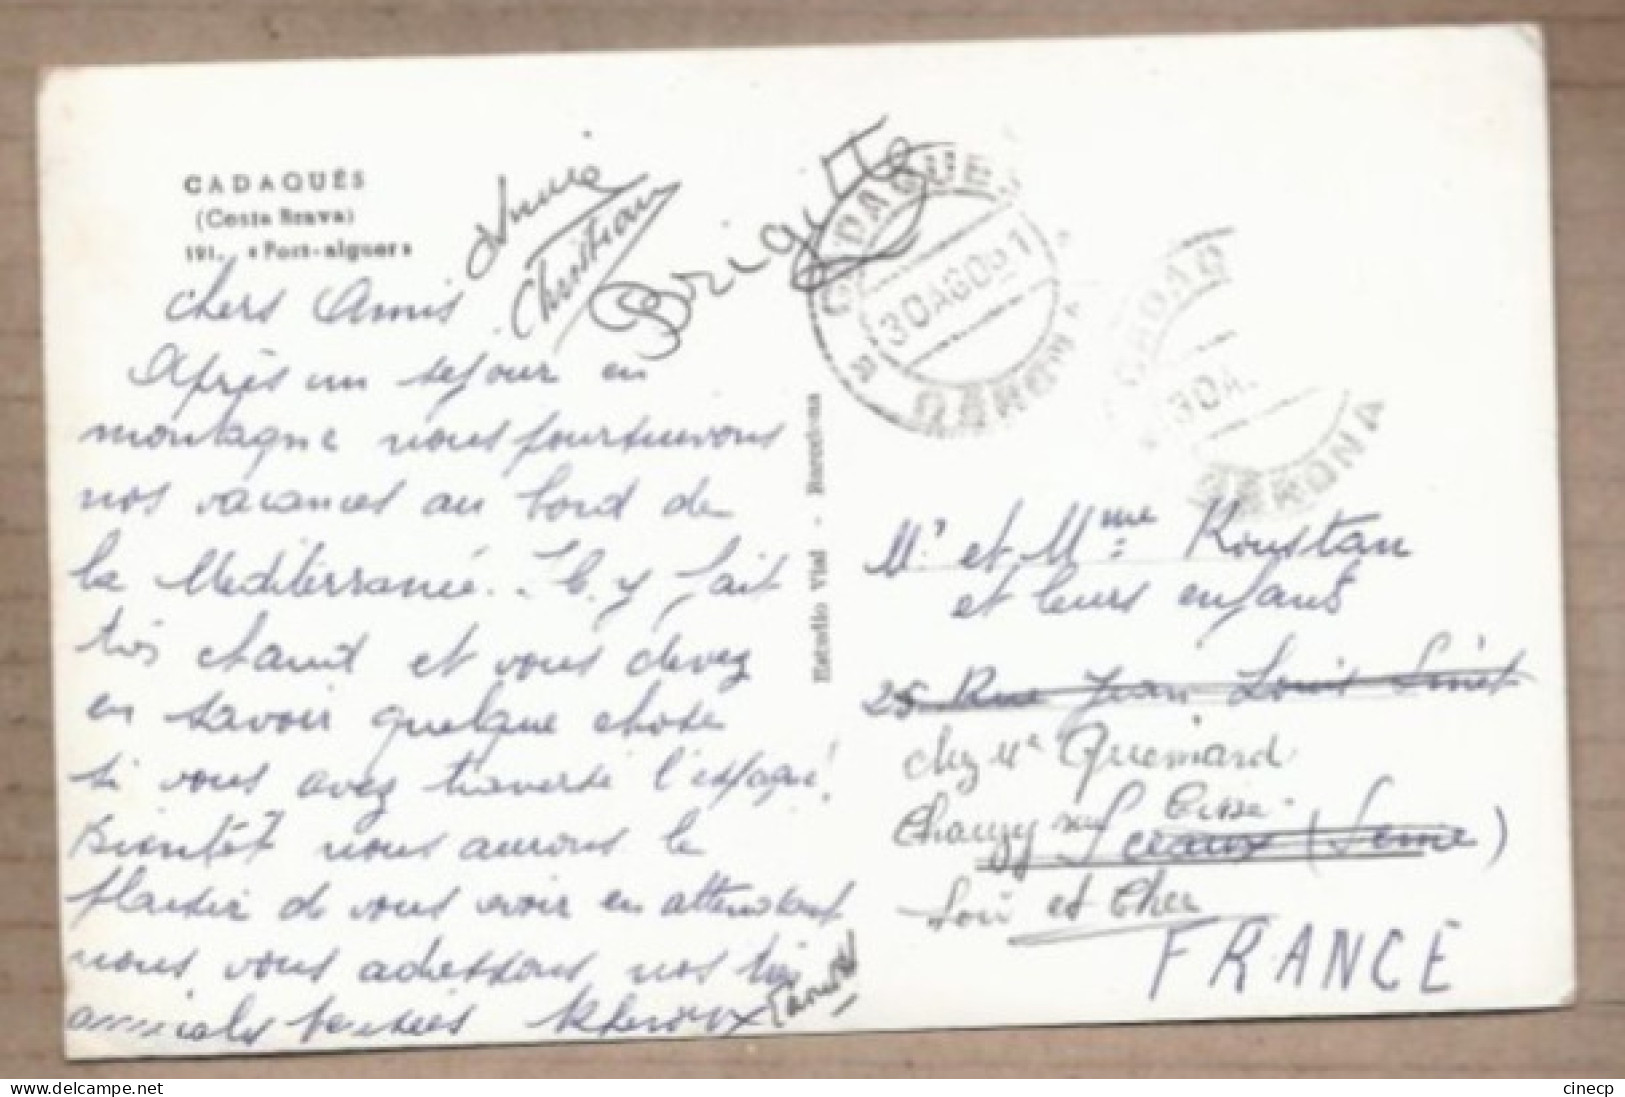 CADAQUÉS
(Costa Brava)
191. «Port-alguer»
Annie
Christian
Brigitte
Chers Amis
Après un sejour en
montagne nous poursuivons
nos vacances au bord de
la Mediterranée... Il y fait
très chaud et vous devez
en savoir quelque chose
si vous avez traversé l'espagne!
Bientôt nous aurons le
plaisir de vous voir en attendant
nous vous adressons nos très
amicales pensées
Estudio Vial - Barcelona
CADAQUES
30 AGO 61
GERONA
CADAQ
30 A
GERONA
Mr et Mme: Roustan
et leurs enfants
25 Rue Jean Louis Sinet
chez Me Quemard
Chouzy sur Cisse
Sceaux (Seine)
Loir et Cher
FRANCE
delcampe.net
cinecp